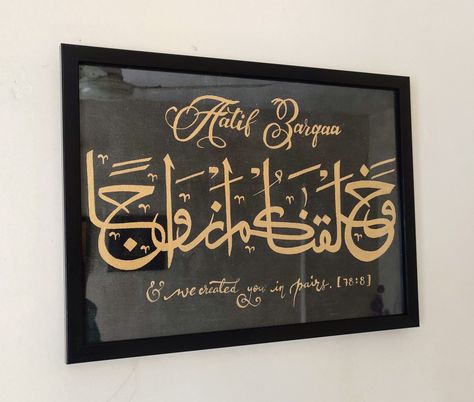 Aatif Zarqaa
وَخَلَقْنٰكُمْ اَزْوَاجًا
& we created you in pairs. [78:8]